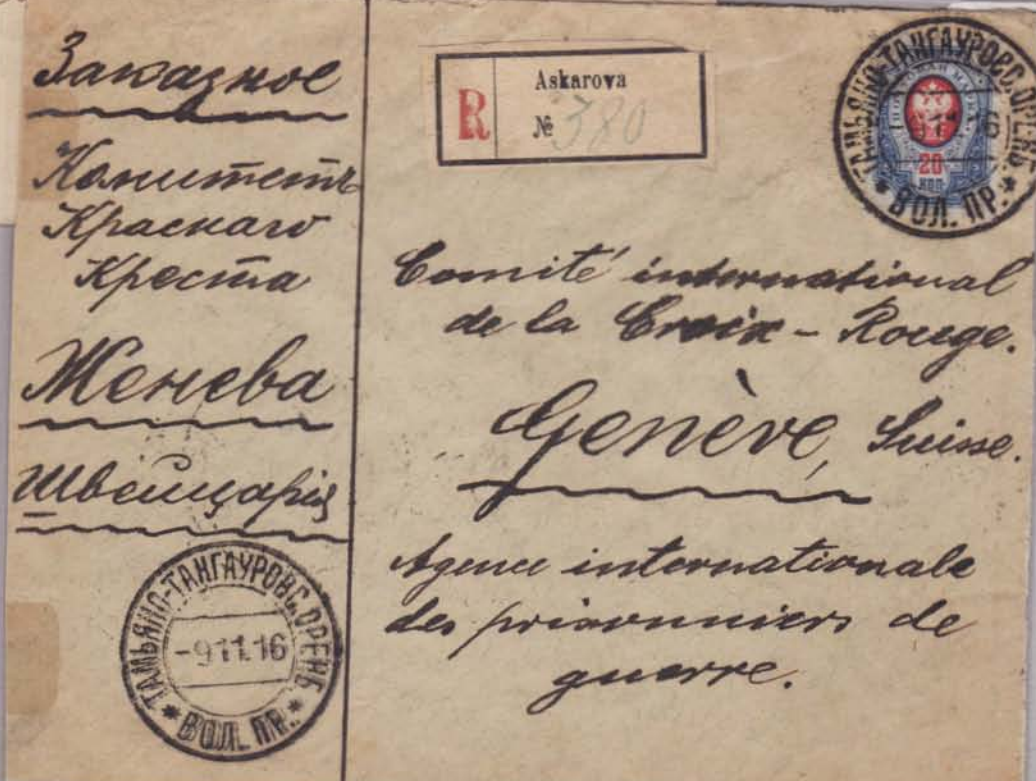 Заказное
Комитетъ
Краснаго
Креста
Женева
Швейцарія
ТАМЬЯНО-ТАНГАУРОВС. ОРЕНБ.
-9.11.16
* ВОЛ. ПР. *
R
Askarova
№ 380
ТАМЬЯНО-ТАНГАУРОВС. ОРЕНБ.
20
КОП.
* ВОЛ. ПР. *
Comité international
de la Croix-Rouge.
Genève, Suisse.
Agence internationale
des prisonniers de
guerre.